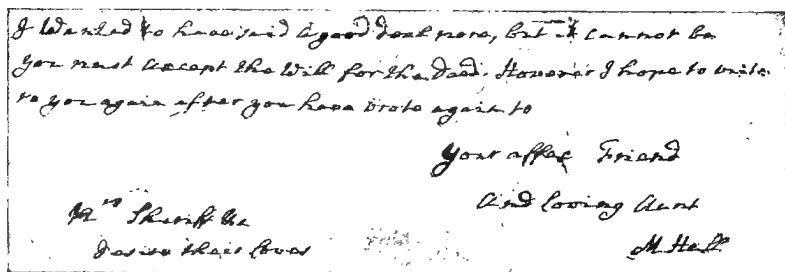 I Wanted to have said a good deal more, but it cannot be
you must accept the Will for the deed. However I hope to write
to you again after you have wrote again to
Your affec Friend
And loving Aunt
M Hall
Mrs Sheriff &c
desire their loves